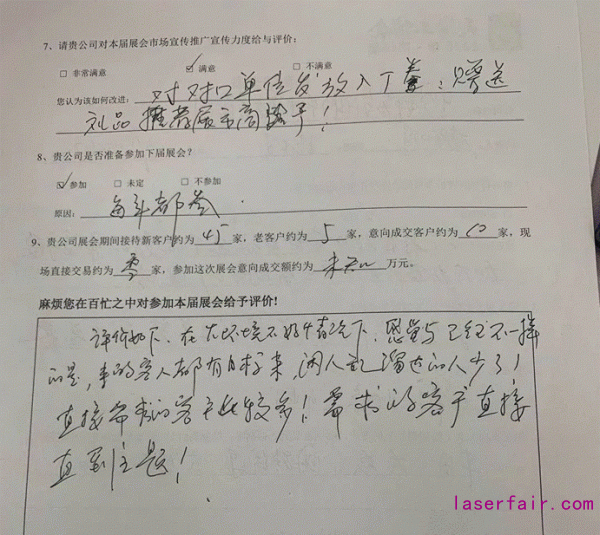 7、请贵公司对本届展会市场宣传推广宣传力度给与评价:
□ 非常满意 ☑ 满意 □ 不满意
您认为该如何改进: 对对口单位发放入门
礼品推荐展示商
8、贵公司是否准备参加下届展会?
☑ 参加 □ 未定 □ 不参加
原因: 每年都参
9、贵公司展会期间接待新客户约为 45 家,老客户约为 5 家,意向成交客户约为 10 家,现
场直接交易约为 零 家,参加这次展会意向成交额约为 未 万元。
麻烦您在百忙之中对参加本届展会给予评价!
评价如下,在大环境不好情况下,感觉与 不一样
的是,来的客人都有目标来,闲人 溜达的人少了!
直接需求的客户比较多!需求的客户直接
直到主题!
laserfair.com